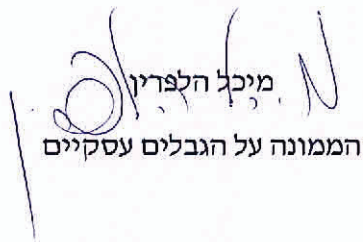 מיכל הלפרין
הממונה על הגבלים עסקיים